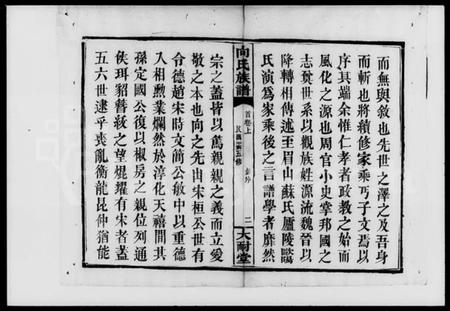 而無與敘也先世之澤之及吾身
而斬也將續修家乘丐子文焉以
序其端余惟仁孝者政教之始而
風化之源也周官小史掌邦國之
志奠世系以觀族姓源流魏晉以
降轉相傳述至眉山蘇氏廬陵歐
氏演為家乘後之言譜學者靡然
向氏族譜
首卷上
民國第五修
新序
二
大耐堂
宗之蓋皆以萬親親之義而立愛
敬之本也向之先由宋桓公世有
令德趙宋時文簡公敏中以重德
入相勲業爛然於淳化天禧間其
孫定國公復以椒房之親位列通
侯珥貂簪紱之望焜耀有宋者蓋
五六世逮乎喪亂衡龍昆仲猶能